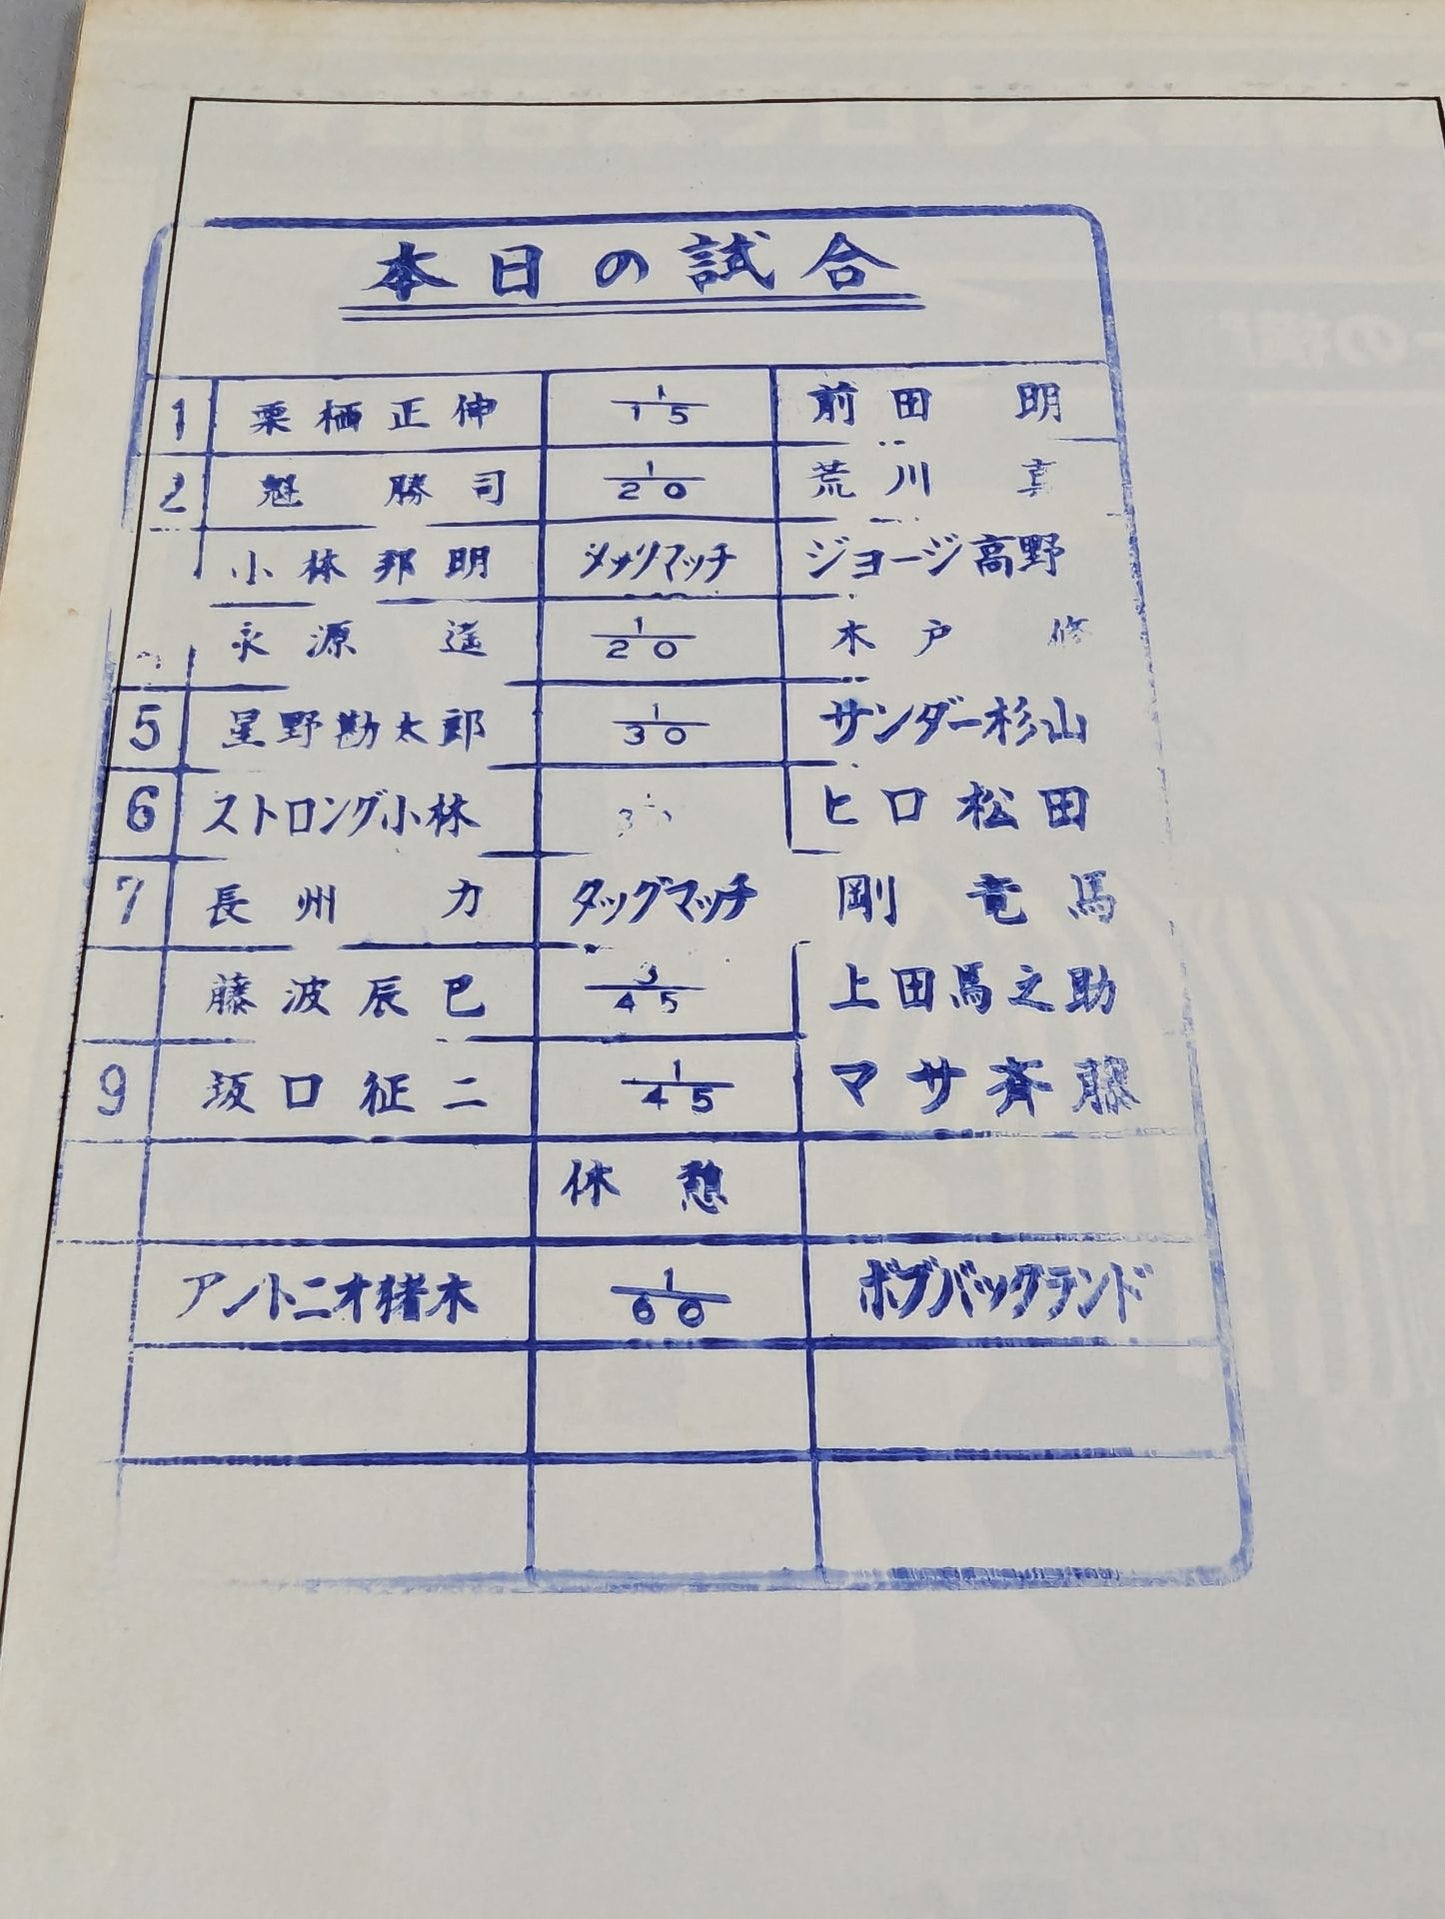 本日の試合
1 栗栖正伸 1/15 前田明
2 魁勝司 1/20 荒川真
小林邦明 タッグマッチ ジョージ高野
永源遥 1/20 木戸修
5 星野勘太郎 1/30 サンダー杉山
6 ストロング小林 ヒロ松田
7 長州力 タッグマッチ 剛竜馬
藤波辰巳 3/45 上田馬之助
9 坂口征二 1/45 マサ斉藤
休憩
アントニオ猪木 1/60 ボブバックランド